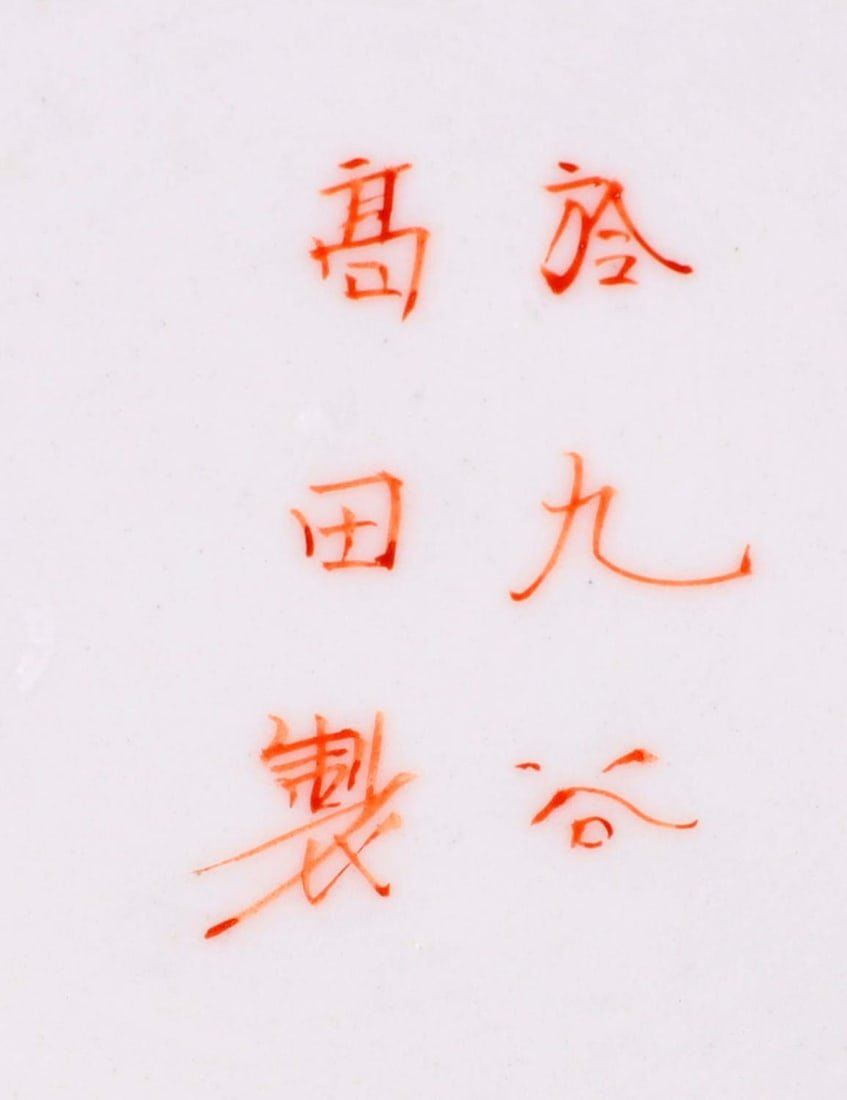 於九谷
髙田製